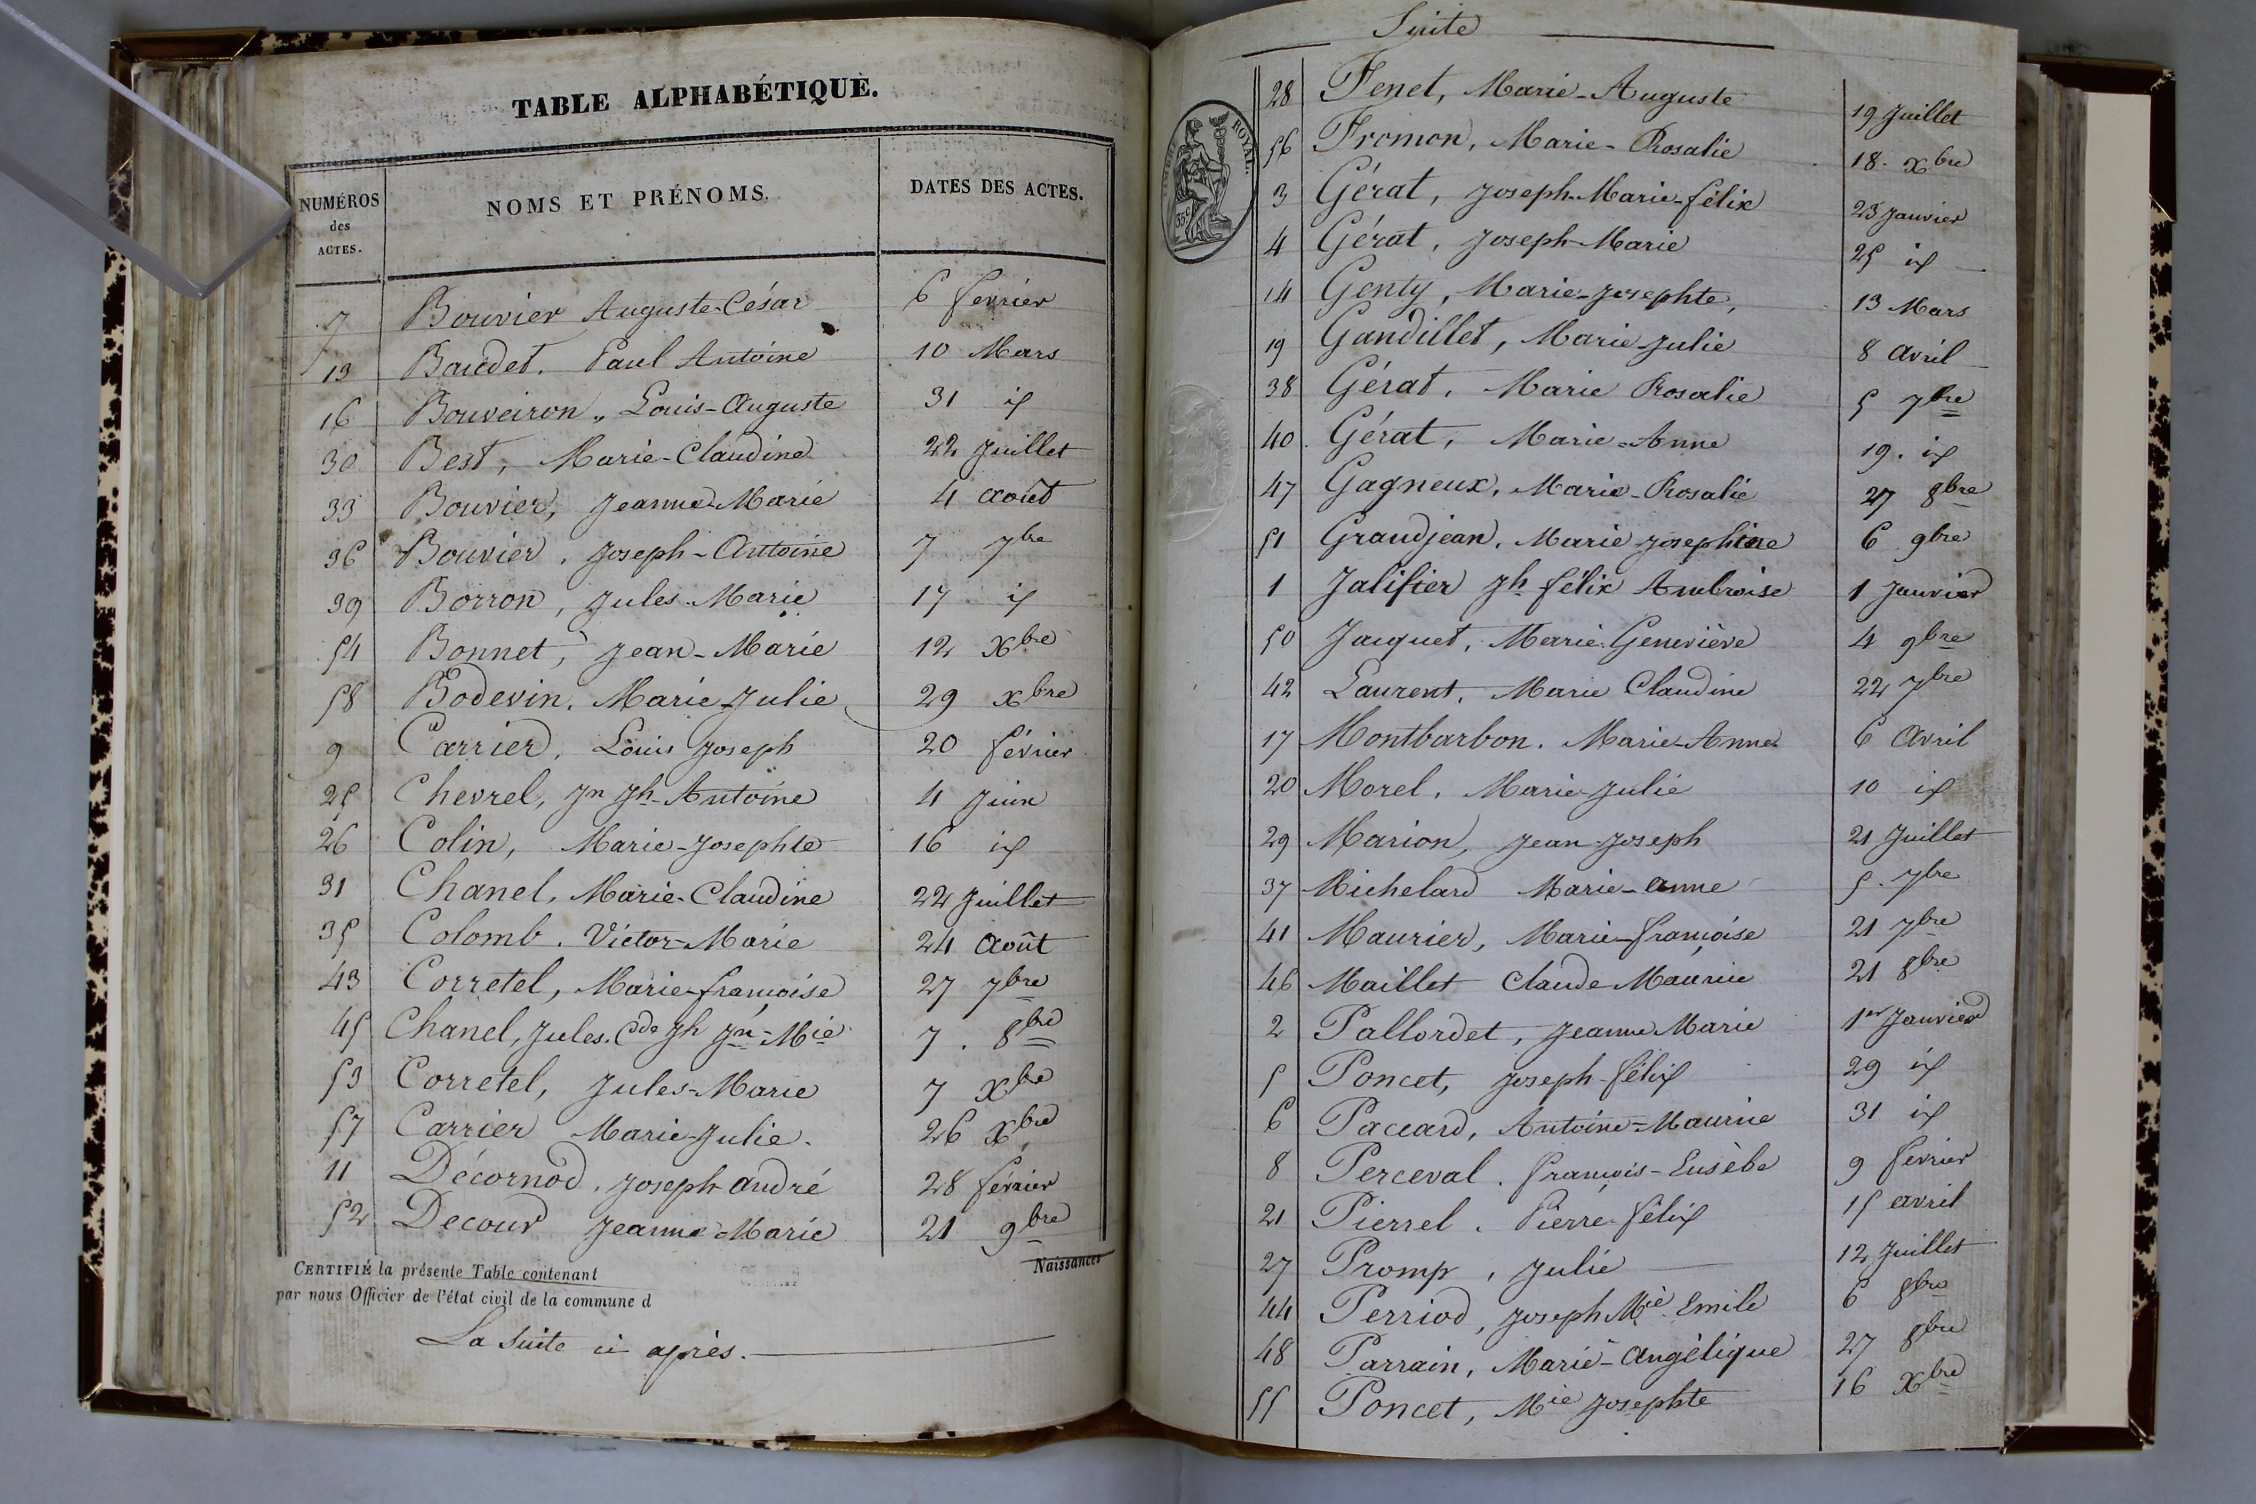 TABLE ALPHABÉTIQUE.
NUMÉROS des ACTES. NOMS ET PRÉNOMS. DATES DES ACTES.
7 Bouvier Auguste-César 6 février
13 Baudet. Paul Antoine 10 Mars
16 Bouveiron, Louis-Auguste 31 id
30 Best, Marie-Claudine 22 Juillet
33 Bouvier, Jeanne-Marie 4 août
36 Bouvier, Joseph-Antoine 7 7bre
39 Borron, Jules-Marie 17 id
54 Bonnet, Jean-Marie 12 Xbre
58 Bodevin. Marie-Julie 29 xbre
9 Carrier, Louis Joseph 20 février
25 Chevrel, Jn Jh-Antoine 4 Juin
26 Colin, Marie-Josephte 16 id
31 Chanel, Marie-Claudine 22 Juillet
35 Colomb. Victor-Marie 24 Août
43 Corretel, Marie-françoise 27 7bre
45 Chanel, Jules. Cde Jh Jn-Mie 7. 8bre
53 Corretel, Jules-Marie 7 Xbre
57 Carrier Marie-Julie. 26 Xbre
11 Décornod, Joseph andré 28 février
52 Decour Jeanne-Marie 21 9bre
Naissances
CERTIFIÉ la présente Table contenant
par nous Officier de l'état civil de la commune d
La Suite ci après.
Suite
ROYAL.
35 c
28 Fenet, Marie-Auguste 19 Juillet
56 Fromon, Marie-Rosalie 18. xbre
3 Gérat, Joseph-Marie-félix 23 Janvier
4 Gérat, Joseph-Marie 25 id
14 Genty, Marie-Josephte, 13 Mars
19 Gandillet, Marie Julie 8 avril
38 Gérat, Marie Rosalie 5 7bre
40. Gérat, Marie-Anne 19. id
47 Gagneux, Marie-Rosalie 27 8bre
51 Grandjean, Marie Josephine 6 9bre
1 Jalifier Jh félix Ambroise 1 Janvier
50 Jacquet, Marie Geneviève 4 9bre
42 Laurent, Marie Claudine 22 7bre
17 Montbarbon. Marie-Anne 6 Avril
20 Morel, Marie-Julie 10 id
29 Marion, Jean-Joseph 21 Juillet
37 Michelard Marie-anne 5. 7bre
41 Maurier, Marie-françoise 21 7bre
46 Maillet Claude-Maurice 21 8bre
2 Pallordet, Jeanne Marie 1er Janvier
5 Poncet, Joseph-félix 29 id
6 Paccard, Antoine-Maurice 31 id
8 Perceval. françois-Eusèbe 9 février
21 Pierrel. Pierre félix 15 avril
27 Promp, Julie 12 Juillet
44 Perriod, Joseph Mie Emile 6 8bre
48 Parrain, Marie-angélique 27 8bre
55 Poncet, Mie Josephte 16 Xbre